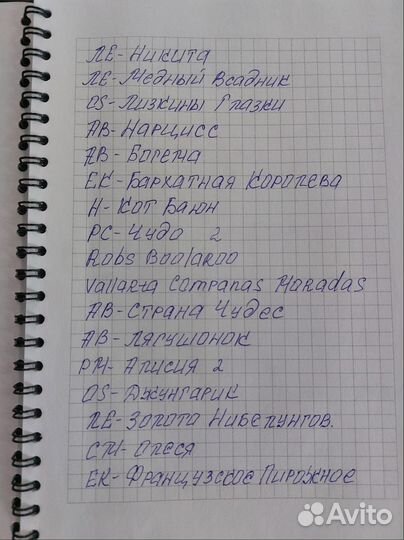 ЛЕ-Никита
ЛЕ-Медный Всадник
OS-Лизкины Глазки
АВ-Нарцисс
АВ-Богема
ЕК-Бархатная Королева
Н-Кот Баюн
РС-Чудо 2
Robs Boolaroo
Vallarta Campanas Moradas
АВ-Страна Чудес
АВ-Лягушонок
РМ-Алисия 2
OS-Джунгарик
ЛЕ-Золото Нибелунгов.
СМ-Олеся
ЕК-Французское Пирожное
Avito